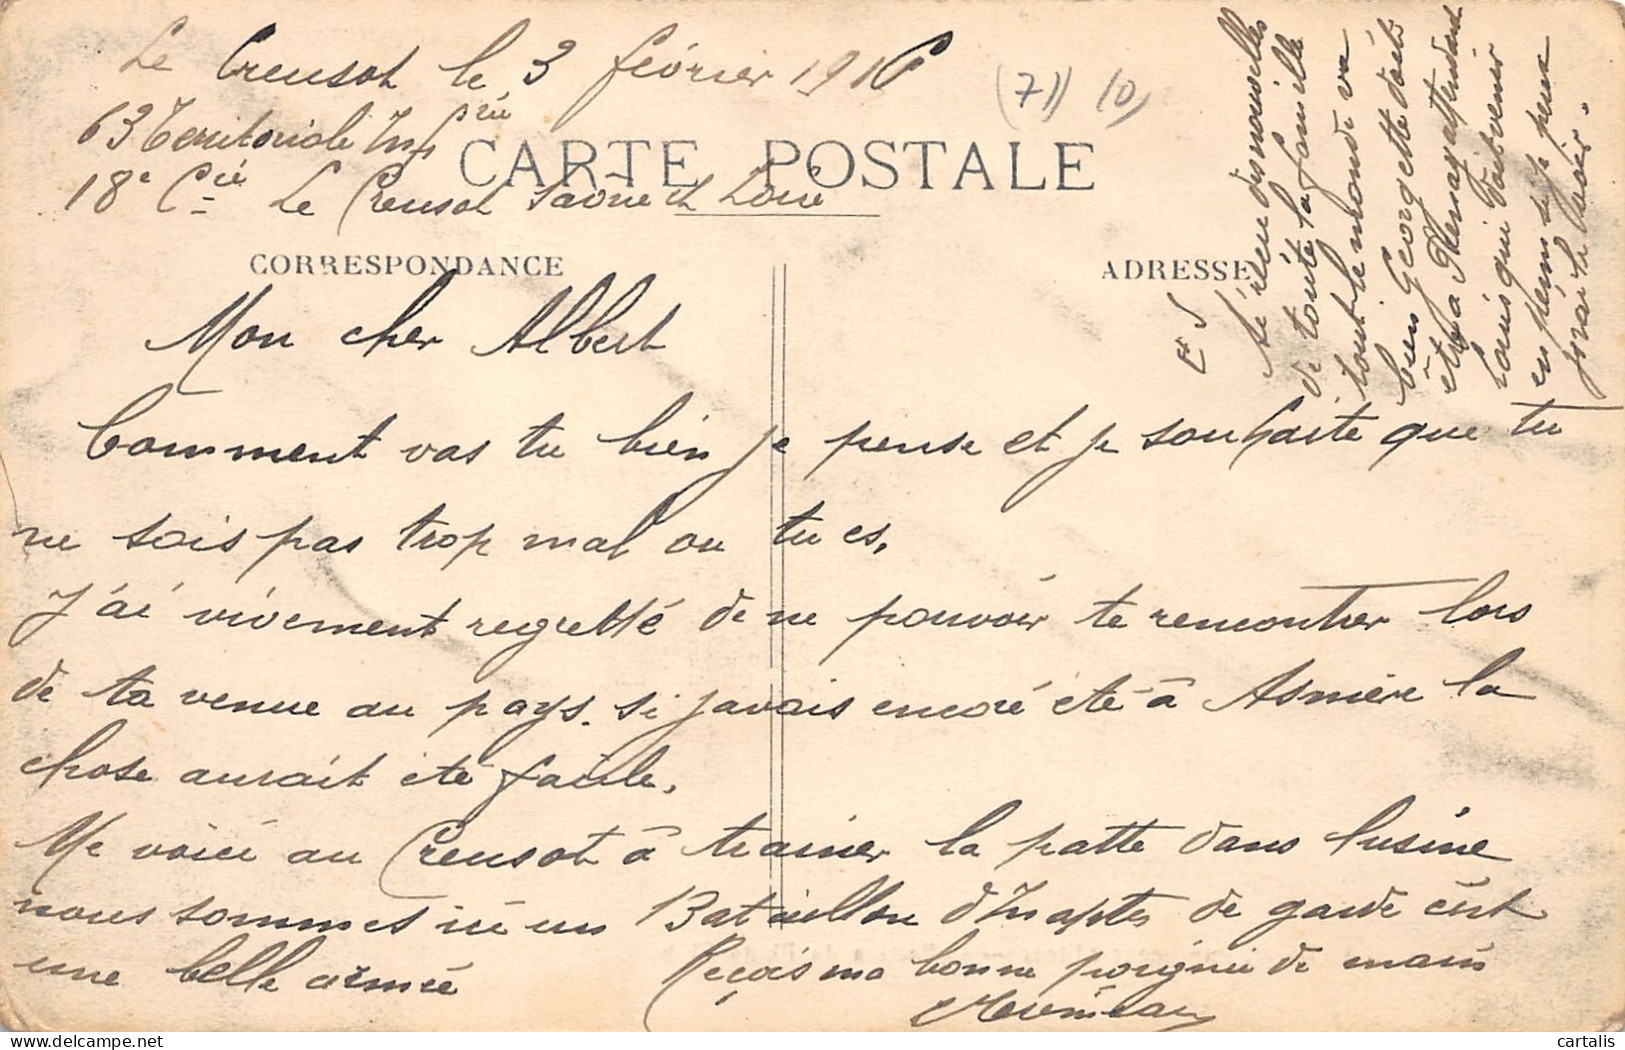 Le Creusot le 3 février 1916
(71) 10)
63 Territoriale Infrie
18e Cie Le Creusot Saône et Loire
CARTE POSTALE
CORRESPONDANCE
ADRESSE
Mon cher Albert
Comment vas tu bien je pense et je souhaite que tu
ne sois pas trop mal ou tu es,
J'ai vivement regretté de ne pouvoir te rencontrer lors
de ta venue au pays. si javais encore été à Asnière la
chose aurait eté facile.
Me voici au Creusot à trainer la patte dans lusine
nous sommes ici un Bataillon d'Inaptes de garde c'est
une belle armée
Reçois ma bonne poignée de main
J'ai reçu des nouvelles
de toute la famille
tout le monde va
bien Georgette doit
être a
Louis qui doit venir
en perm si je peux
jirai le voir.
cartalis
delcampe.net